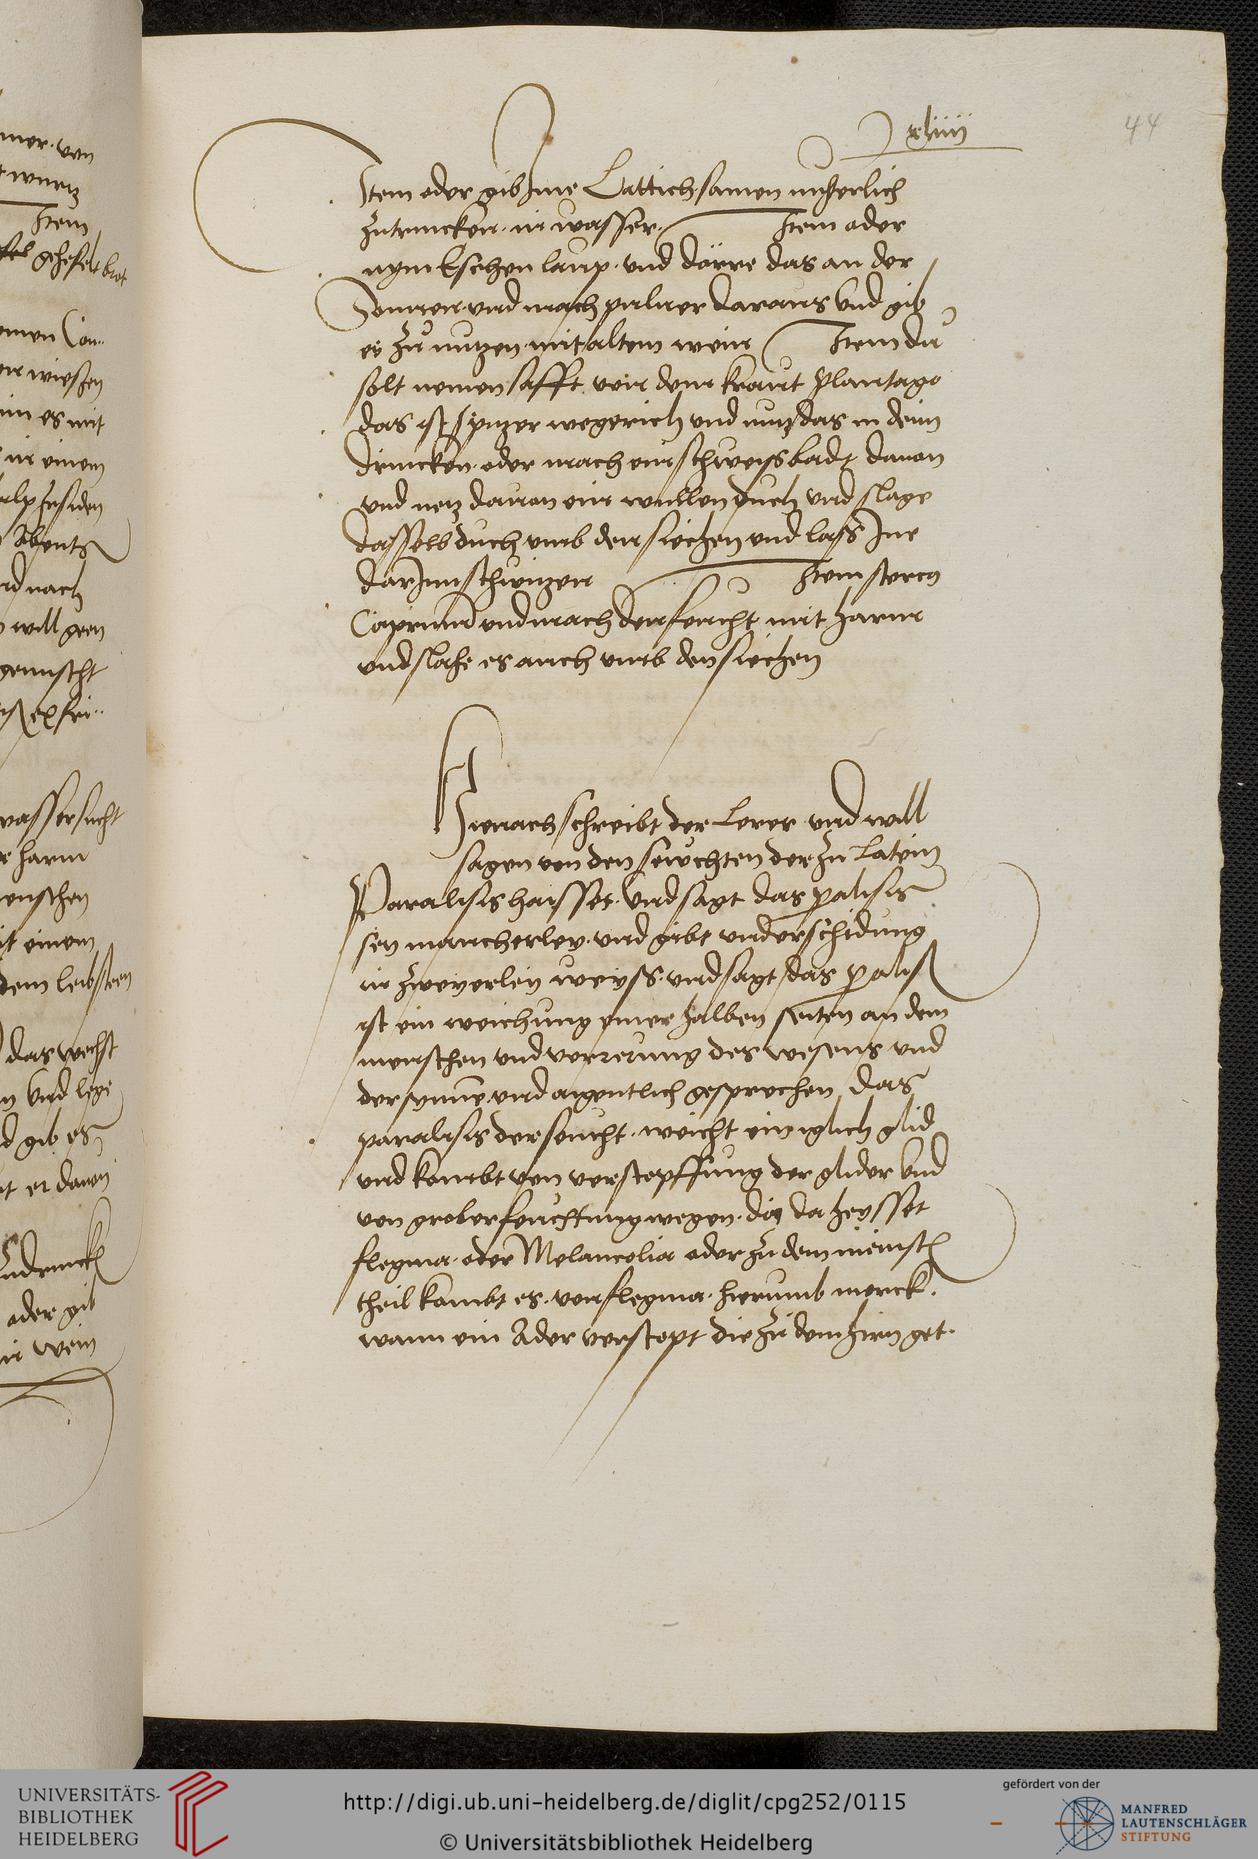 xliiii
44
Item oder gib Ime Lattich samen nuchterlich
zutrincken in wasser Item oder
nym Eschen laup vnd dörre das an der
Sonnen vnd mach puluer daraus vnd gib
es zu nutzen mit altem wein Item du
solt nemen safft von dem kraut Plantago
das ist spitzer wegerich vnd nutz das in deim
drincken oder mach ein schweissbadt dauon
vnd netz dauon ein wullen duch vnd slage
dasselb duch vmb den siechen vnd lass Ine
darInn schwitzen Item sterco
Caprinu vnd mach den feucht mit harm
vnd slahe es auch vmb den siechen
Hienach schreibt der Lerer vnd will
sagen von den seuchten der zu Latein
Paralisis haisset vnd sagt das palisis
sey mancherley vnd gibt vnderschidung
in zweyerley weyss vnd sagt das palis
ist ein weichung einer halben seiten an dem
menschen vnd verrerung des wesens vnd
der synne vnd aigentlich gesprochen Das
paralisis der seucht weicht ein iglich glid
vnd kombt von verstopffung der glider vnd
von grober feuchtung wegen die da heysset
flegma oder Melancolia oder zu dem meinst
theil kombt es von flegma hierumb merck
wann ein Ader verstopt die zu dem hirn get
mer von
wurtz
Item
gehefelt brot
wiesen
im es mit
in einem
Abents
nach
will geen
gemischt
wassersucht
harm
menschen
mit einem
dem leib
das wechst
vnd lege
gib es
er dauon
oder gib
in wein
UNIVERSITÄTS-
BIBLIOTHEK
HEIDELBERG
http://digi.ub.uni-heidelberg.de/diglit/cpg252/0115
© Universitätsbibliothek Heidelberg
gefördert von der
MANFRED
LAUTENSCHLÄGER
STIFTUNG